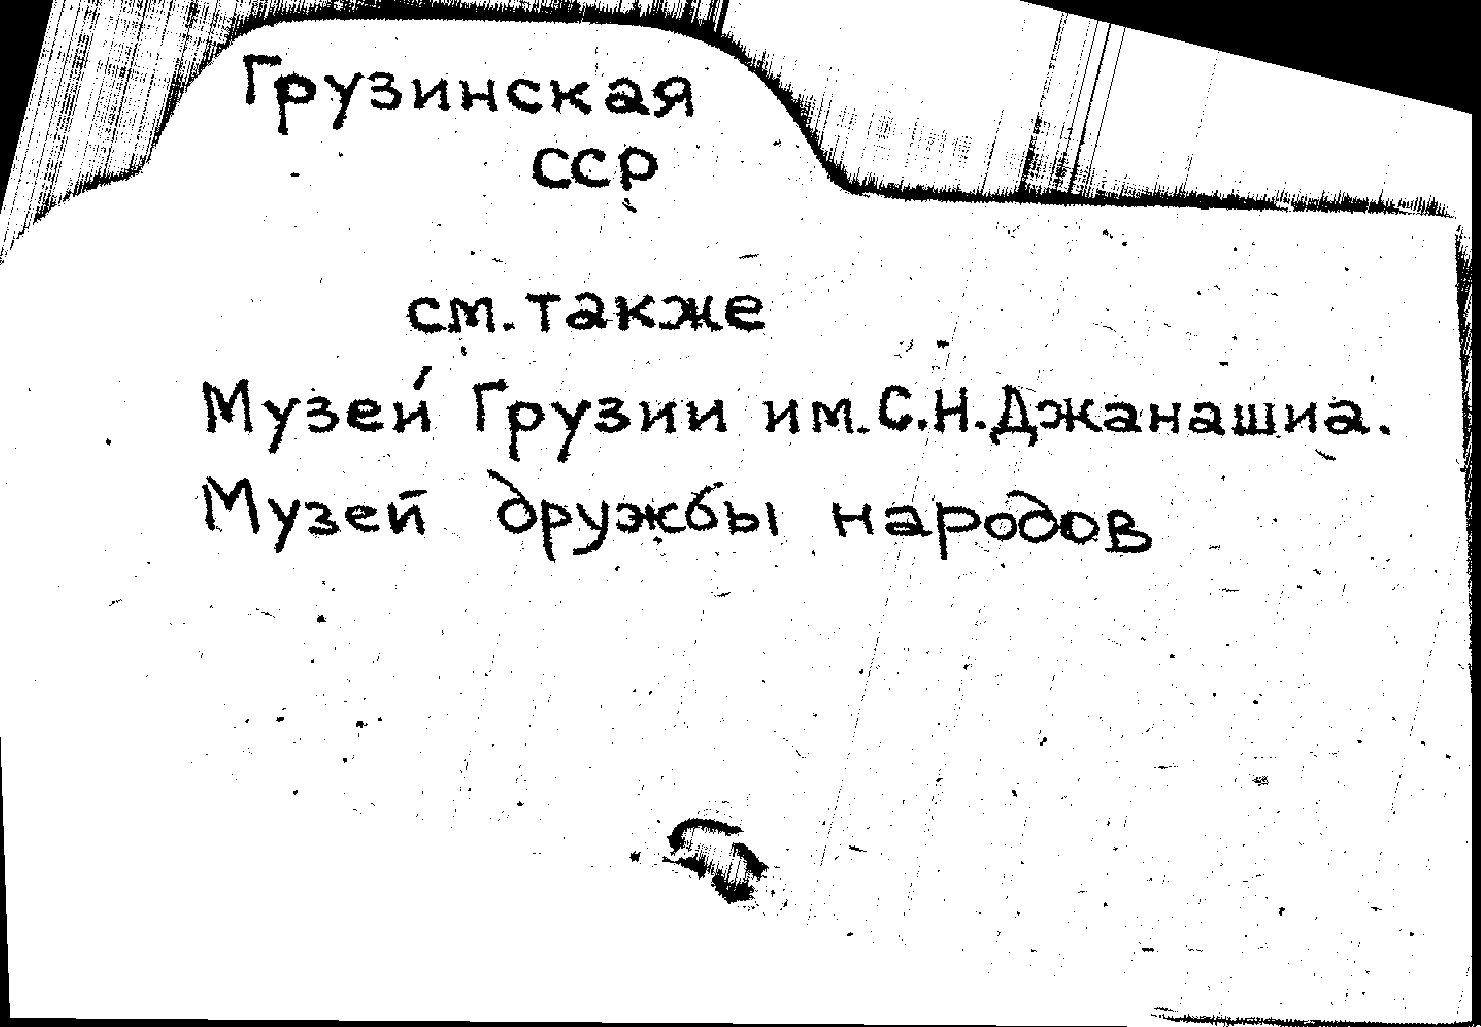 Грузинская
ССР
см. также
Музей Грузии им. С.Н. Джанашиа.
Музей дружбы народов